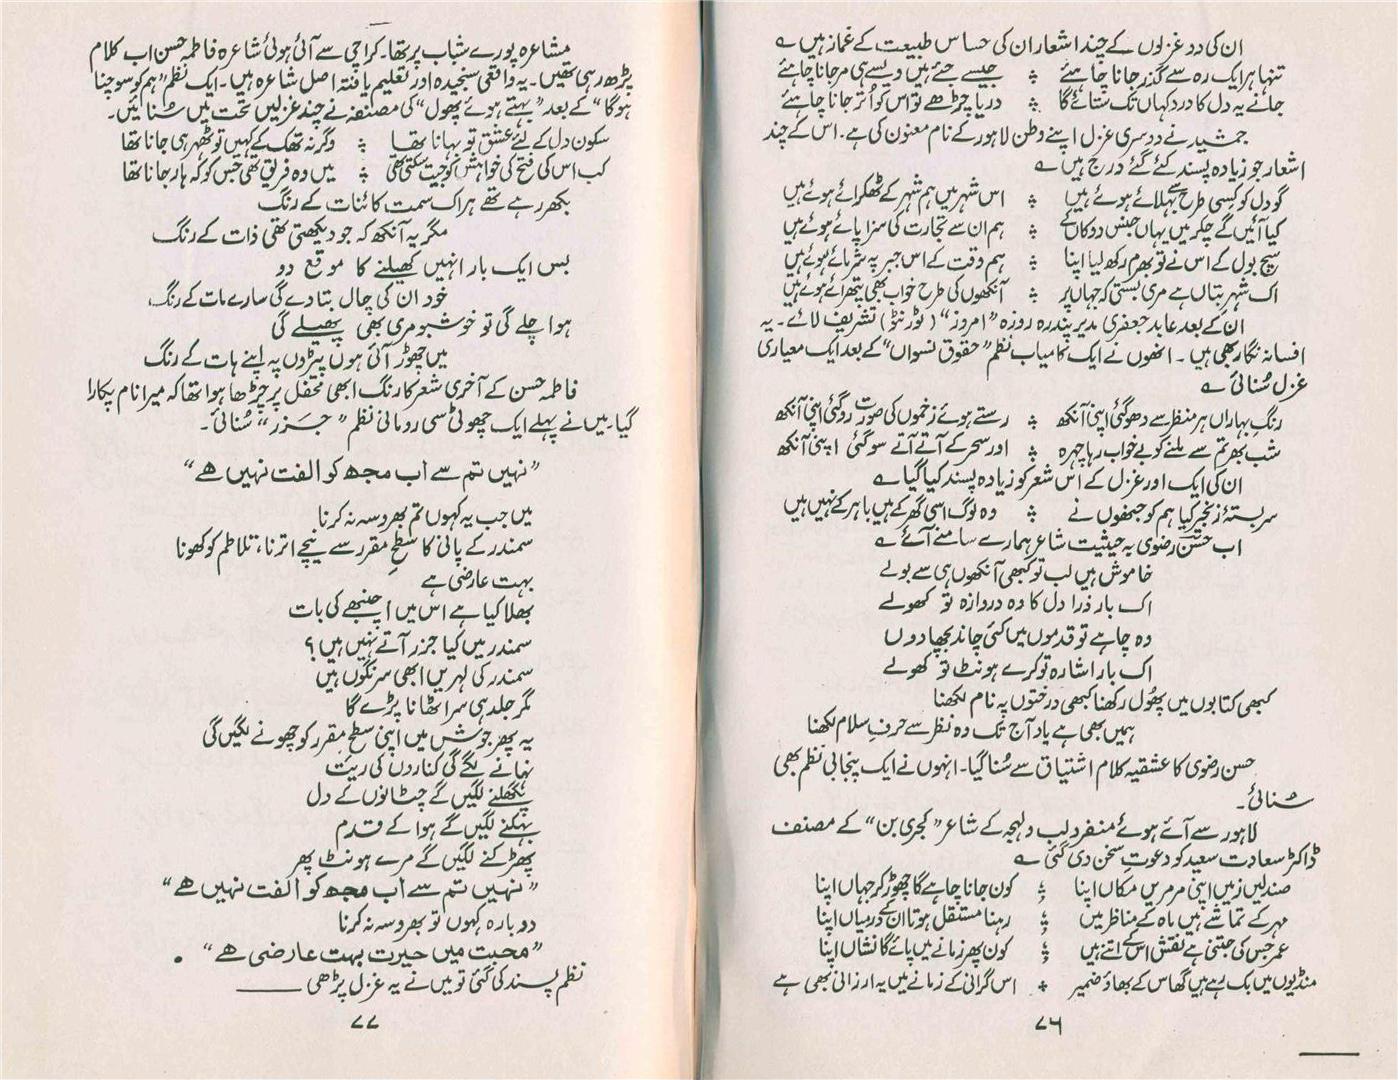 ان کی دو غزلوں کے چند اشعار ان کی حساس طبیعت کے غماز ہیں ؎
تنہا ہر ایک رہ سے گذر جانا چاہئے ؞ جیسے جئے ہیں ویسے ہی مر جانا چاہئے
جانے یہ دل کا درد کہاں تک ستائے گا ؞ دریا چڑھے تو اس کو اُتر جانا چاہئے
جمشید نے دوسری غزل اپنے وطن لاہور کے نام معنون کی ہے۔ اس کے چند
اشعار جو زیادہ پسند کئے گئے درج ہیں ؎
گو دل کو کسی طرح سے بہلائے ہوئے ہیں ؞ اس شہر میں ہم شہر کے ٹھکرائے ہوئے ہیں
کیا آئیں گے چکر میں یہاں جنس و دکاں کے ؞ ہم ان سے تجارت کی سزا پائے ہوئے ہیں
سچ بول کے اس نے تو بھرم رکھ لیا اپنا ؞ ہم وقت کے اس جبر پہ شرمائے ہوئے ہیں
اک شہرِ بتاں ہے مری بستی کہ جہاں پر ؞ آنکھوں کی طرح خواب بھی پتھرائے ہوئے ہیں
ان کے بعد عابد جعفری مدیر پندرہ روزہ ”امروز“ (ٹورنٹو) تشریف لائے۔ یہ
افسانہ نگار بھی ہیں۔ انھوں نے ایک کامیاب نظم ”حقوق نسواں“ کے بعد ایک معیاری
غزل سُنائی ؎
رنگِ بہاراں ہر منظر سے دھو گئی اپنی آنکھ ؞ رستے ہوئے زخموں کی صورت رو گئی اپنی آنکھ
شب بھر تم سے ملنے کو بے خواب رہا چہرہ ؞ اور سحر کے آتے آتے سو گئی اپنی آنکھ
ان کی ایک اور غزل کے اس شعر کو زیادہ پسند کیا گیا ؎
سربستۂ زنجیر کیا ہم کو جنھوں نے ؞ وہ لوگ اسی گھر کے ہیں باہر کے نہیں ہیں
اب حسن رضوی بہ حیثیت شاعر ہمارے سامنے آئے ؎
خاموش ہیں لب تو کبھی آنکھوں ہی سے بولے
اک بار ذرا دل کا وہ دروازہ تو کھولے
وہ چاہے تو قدموں میں کئی چاند بچھا دوں
اک بار اشارہ تو کرے ہونٹ تو کھولے
کبھی کتابوں میں پھول رکھنا کبھی درختوں پہ نام لکھنا
ہمیں بھی ہے یاد آج تک وہ نظر سے حرفِ سلام لکھنا
حسن رضوی کا عشقیہ کلام اشتیاق سے سُنا گیا۔ انہوں نے ایک پنجابی نظم بھی
سُنائی۔
لاہور سے آئے ہوئے منفرد لب و لہجہ کے شاعر ”کجری بن“ کے مصنف
ڈاکٹر سعادت سعید کو دعوتِ سخن دی گئی ؎
صندلیں زمیں اپنی مرمریں مکاں اپنا ؞ کون جانا چاہے گا چھوڑ کر جہاں اپنا
مہر کے تماشے ہیں ماہ کے مناظر میں ؞ رہنا مستقل ہوتا ان کے درمیاں اپنا
عمر جس کی جتنی ہے نقش اس کے اتنے ہیں ؞ کون پھر زمانے میں پائے گا نشاں اپنا
منڈیوں میں بک رہے ہیں گھاس کے بھاؤ ضمیر ؞ اس گرانی کے زمانے میں یہ ارزانی بھی ہے
۷۶
مشاعرہ پورے شباب پر تھا۔ کراچی سے آئی ہوئی شاعرہ فاطمہ حسن اب کلام
پڑھ رہی تھیں۔ یہ واقعی سنجیدہ اور تعلیم یافتہ اصل شاعرہ ہیں۔ ایک نظم ”ہم کو سوچنا
ہوگا“ کے بعد ”بہتے ہوئے پھول“ کی مصنفہ نے چند غزلیں تحت میں سُنائیں۔
سکون دل کے لئے عشق تو بہانا تھا ؞ وگرنہ تھک کے کہیں تو ٹھہر ہی جانا تھا
کب اس کی فتح کی خواہش کو جیت سکتی تھی ؞ میں وہ فریق تھی جس کو کہ ہار جانا تھا
بکھر رہے تھے ہر اک سمت کائنات کے رنگ
مگر یہ آنکھ کہ جو دیکھتی تھی ذات کے رنگ
بس ایک بار انہیں کھیلنے کا موقع دو
خود ان کی چال بتا دے گی سارے مات کے رنگ
ہوا چلے گی تو خوشبو مری بھی پھیلے گی
میں چھوڑ آئی ہوں پیڑوں پہ اپنے ہات کے رنگ
فاطمہ حسن کے آخری شعر کا رنگ ابھی محفل پر چڑھا ہوا تھا کہ میرا نام پکارا
گیا۔ میں نے پہلے ایک چھوٹی سی رومانی نظم ”جزر“ سُنائی۔
”نہیں تم سے اب مجھ کو الفت نہیں ھے“
میں جب یہ کہوں تم بھروسہ نہ کرنا
سمندر کے پانی کا سطحِ مقرر سے نیچے اترنا، تلاطم کو کھونا
بہت عارضی ہے
بھلا کیا ہے اس میں اچنبھے کی بات
سمندر میں کیا جزر آتے نہیں ہیں؟
سمندر کی لہریں ابھی سرنگوں ہیں
مگر جلد ہی سر اٹھانا پڑے گا
یہ پھر جوش میں اپنی سطحِ مقرر کو چھونے لگیں گی
نہانے لگے گی کناروں کی ریت
پگھلنے لگیں گے چٹانوں کے دل
بہکنے لگیں گے ہوا کے قدم
پھڑکنے لگیں گے مرے ہونٹ پھر
”نہیں تم سے اب مجھ کو الفت نہیں ھے“
دوبارہ کہوں تو بھروسہ نہ کرنا
”محبت میں حیرت بہت عارضی ھے“
نظم پسند کی گئی تو میں نے یہ غزل پڑھی
۷۷